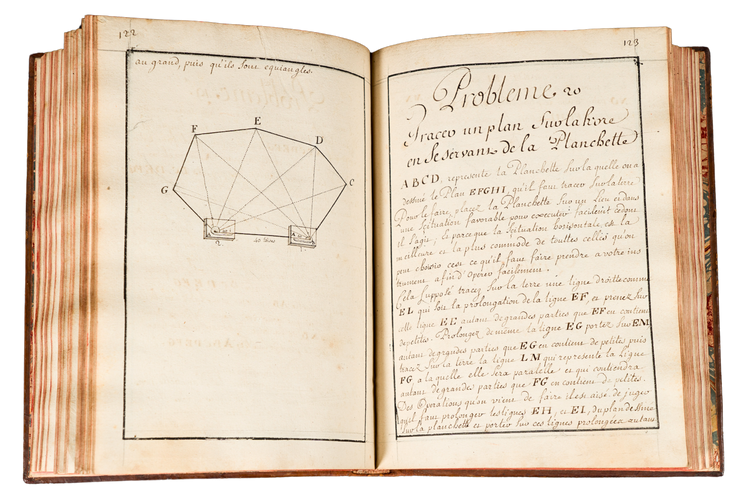 122
au grand, puis qu'ils sont equiangles.
E
F
D
G
C
2
1
123
Probleme 20
Tracer un plan Sur la terre
en Se servant de la Planchette
ABCD, represente la Planchette sur laquelle on a
dessiné le Plan EFGHI, qu'il faut tracer Sur la terre
Pour le faire, placez la Planchette Sur un Lieu et dans
une Scituation favorable pour executer facilement ce dont
il S'agit; et parce que la Scituation horisontale est la
meilleure et la plus commode de touttes celles qu'on
peut choisir c'est ce qu'il faut faire prendre a votre ins
trument afin d'operer facilement.
Cela Supposé tracez Sur la terre une ligne droitte comme
EL qui soit la prolongation de la ligne EF, et prenez Sur
cette ligne EE autant de grandes parties que EF en contient
de petites. Prolongez de même la ligne EG portez Sur EM
autant de grandes parties que EG en contient de petites puis
tracez Sur la terre la ligne LM qui represente la Ligne
FG a laquelle elle Sera paralelle et qui contiendra
autant de grandes parties que FG en contient de petites.
Des Operations qu'on vient de faire il est aisé de juger
qu'il faut prolonger les lignes EH, et EI, du plan de
Sur la planchette et porter Sur ces lignes prolongées autant